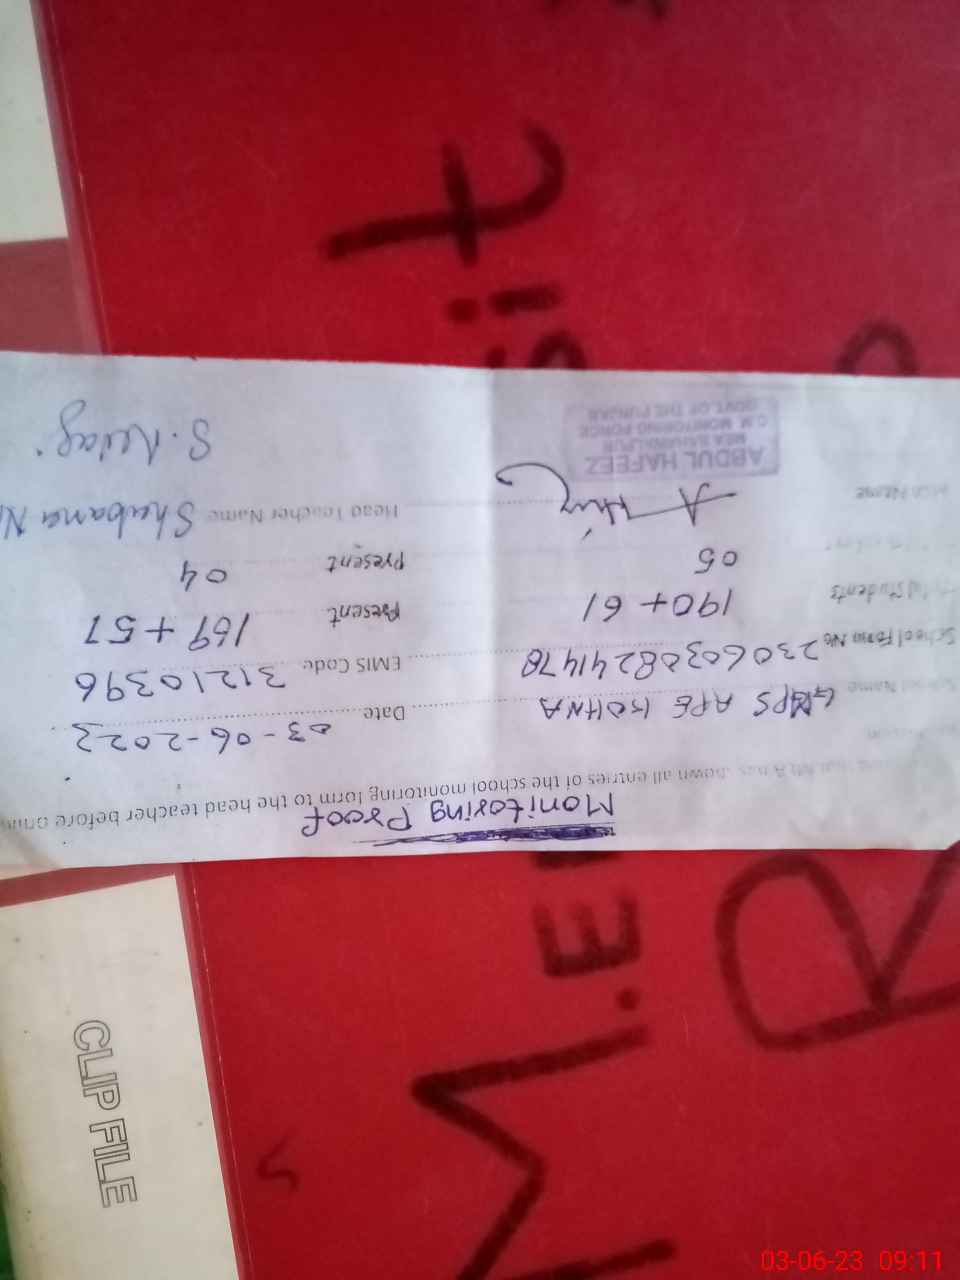 Monitoring Proof
shown all entries of the school monitoring form to the head teacher before
School Name GMPS APE KOHNA Date 03-06-2023
School Form No 23060308241478 EMIS Code 31210396
Students 190+61 Present 169+51
05 Present 04
MEA Name Head Teacher Name Shabana
ABDUL HAFEEZ
MEA BAHAWALPUR
C.M. MONITORING FORCE
GOVT. OF THE PUNJAB
CLIP FILE
M.E
R
03-06-23 09:11